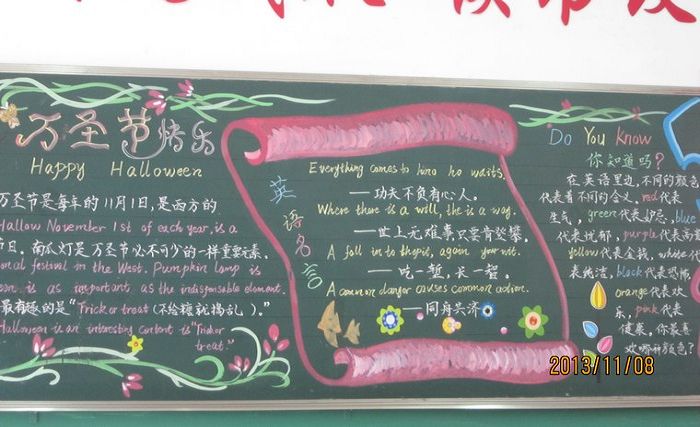 万圣节快乐
Happy Halloween
万圣节是每年的11月1日,是西方的
Hallow November 1st of each year, is a
节日,南瓜灯是万圣节必不可少的一样重要元素,
onal festival in the West. Pumpkin lamp is
een is as important as the indispensable element.
最有趣的是“Trick or treat(不给糖就捣乱)。”
Halloween is an interesting content is "Trick or
treat."
英语名言
Everything comes to him ho waits.
——功夫不负有心人。
Where there is a will, the is a way.
——世上无难事只要肯登攀。
A fall in to the pit, a gain your wit.
——吃一堑,长一智。
A common danger causes common action.
——同舟共济
Do You Know
你知道吗?
在英语里边,不同的颜色
代表着不同的含义,red代表
生气,green代表妒忌,blue
代表忧郁,purple代表高贵
yellow代表金钱,white代
表纯洁,black代表恐怖,
orange代表欢
乐,pink代表
健康,你最喜
欢哪种颜色?
2013/11/08